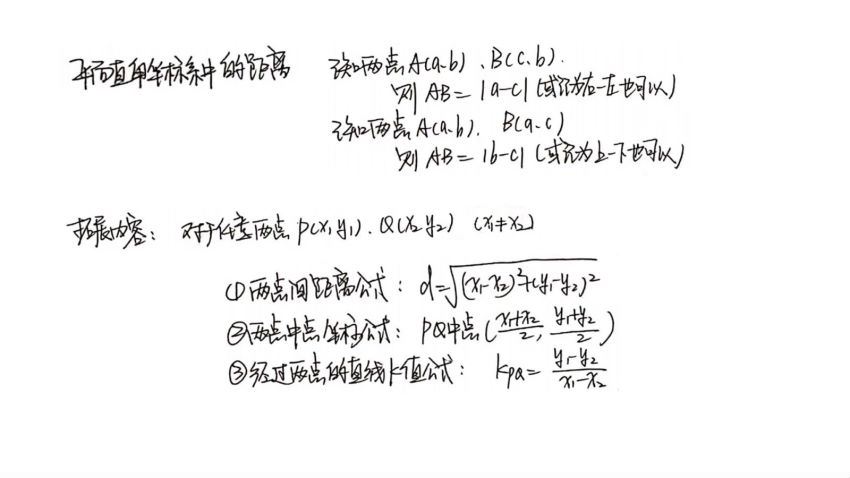 平面直角坐标系中的距离 已知两点A(a,b)、B(c,b).
则AB=|a-c|(或记为右-左也可以)
已知两点A(a,b)、B(a,c)
则AB=|b-c|(或记为上-下也可以)
拓展内容：对于任意两点P(x₁,y₁)、Q(x₂,y₂) (x₁≠x₂)
①两点间距离公式：d=√((x₁-x₂)²+(y₁-y₂)²)
②两点中点坐标公式：PQ中点((x₁+x₂)/2,(y₁+y₂)/2)
③经过两点的直线k值公式：kPQ=(y₁-y₂)/(x₁-x₂)